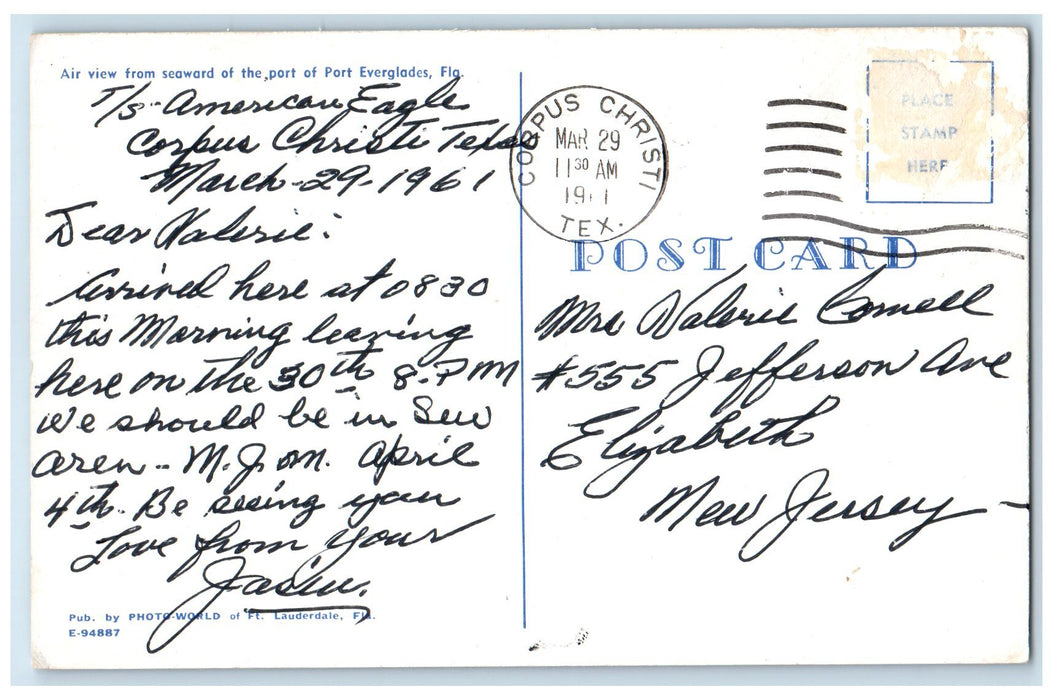 Air view from seaward of the port of Port Everglades, Fla.
T/s- American Eagle
Corpus Christi Texas
March-29-1961
Dear Valerie:
Arrived here at 0830
this Morning leaving
here on the 30th 8-PM
We should be in Sew
aren -- N.J on. April
4th. Be seeing you
Love from your
Pub. by PHOTO-WORLD of Ft. Lauderdale, Fla.
E-94887
CORPUS CHRISTI
MAR 29
11 30 AM
TEX.
PLACE
STAMP
HERE
POST CARD
Mrs Valerie Cornell
#555 Jefferson Ave
Elizabeth
New Jersey -